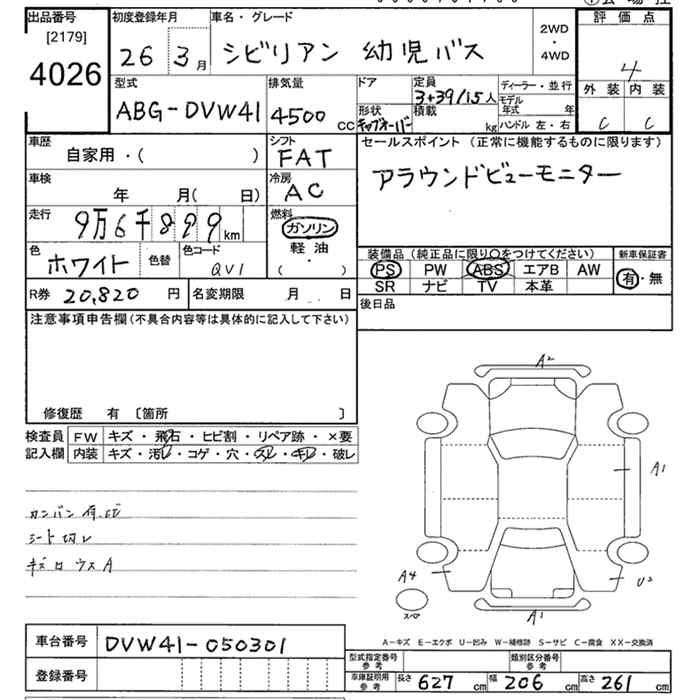 出品番号
[2179]
4026
初度登録年月
26 3月
車名・グレード
シビリアン 幼児バス
2WD
・
4WD
評価点
4
外装 内装
C C
型式
ABG-DVW41
排気量
4500 CC
ドア
定員
3+39/1.5人
形状
キャブオーバー
積載
kg
ディーラー・並行
モデル年式 年
ハンドル 左・右
車歴
自家用・( )
シフト
FAT
セールスポイント (正常に機能するものに限ります)
アラウンドビューモニター
車検
年 月( 日)
冷房
AC
走行
9万6千899km
燃料
ガソリン
軽油
・
( )
色
ホワイト
色替
色コード
QV1
装備品 (純正品に限り○をつけてください)
PS PW ABS エアB AW
SR ナビ TV 本革
新車保証書
有・無
R券 20,820 円
名変期限 月 日
後日品
注意事項申告欄 (不具合内容等は具体的に記入して下さい)
修復歴 有 〔箇所 〕
検査員
記入欄
FW キズ・飛石・ヒビ割・リペア跡・×要
内装 キズ・汚レ・コゲ・穴・スレ・キレ・破レ
カンバン有
シート切レ
A2
A1
A4
U2
A1
スペア
車台番号
DVW41-050301
登録番号
A-キズ E-エクボ U-凹み W-補修跡 S-サビ C-腐食 XX-交換済
型式指定番号
参考
類別区分番号
参考
車庫証明用
参考
長さ 627 cm
幅 206 cm
高さ 261 cm